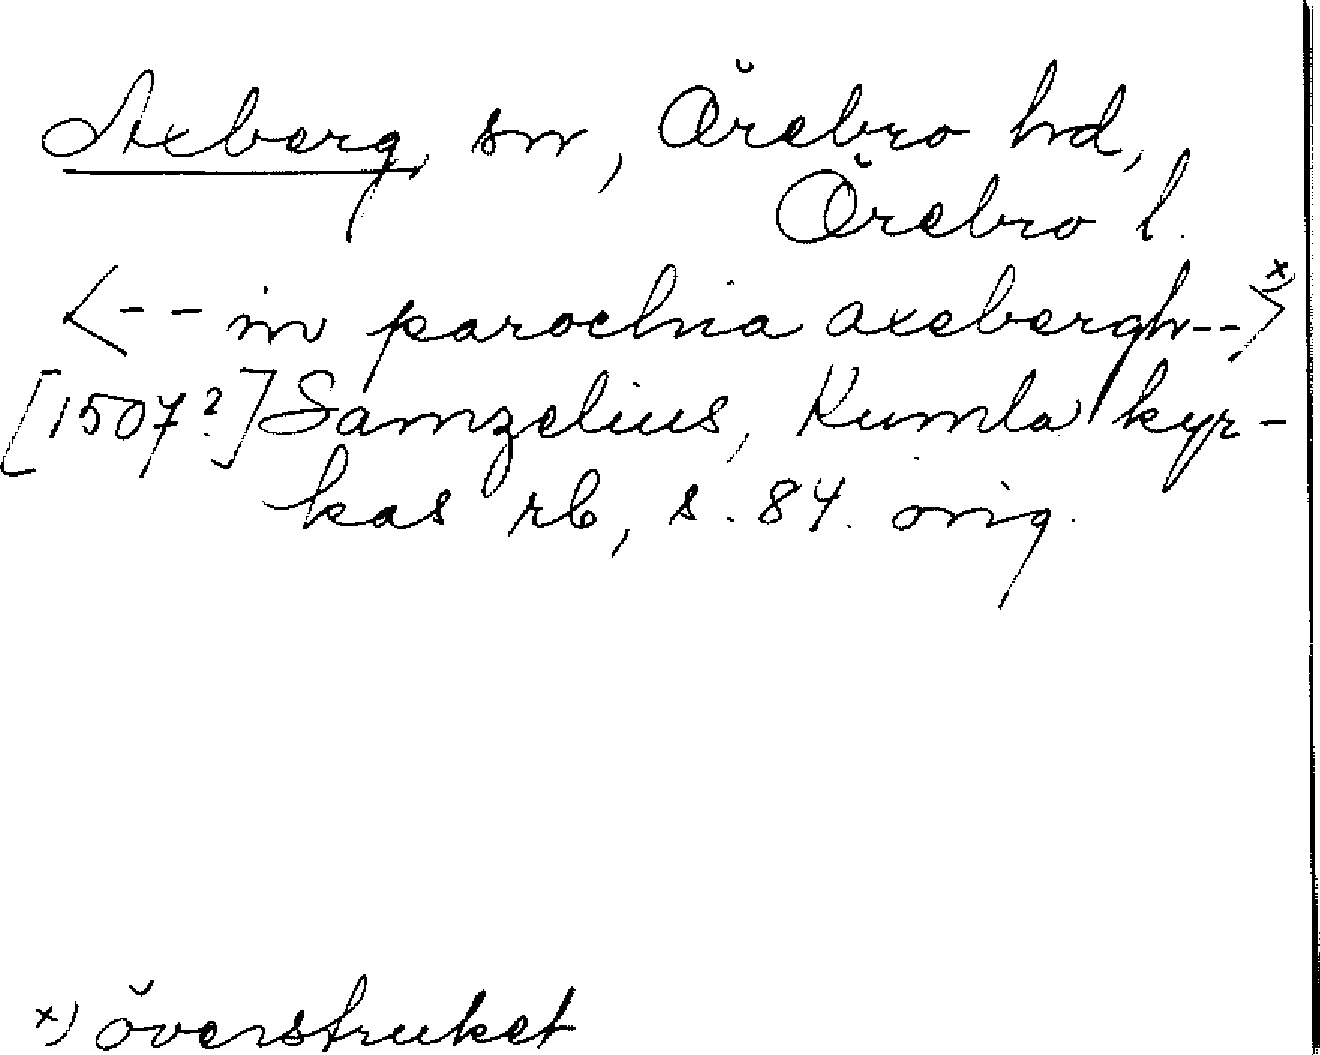 Axberg, sn, Örebro hd,
Örebro l.
<-- in parochia axebergh-->x)
[1507?] Samzelius, Kumla kyr-
kas rb, s. 84. orig.
x) överstruket